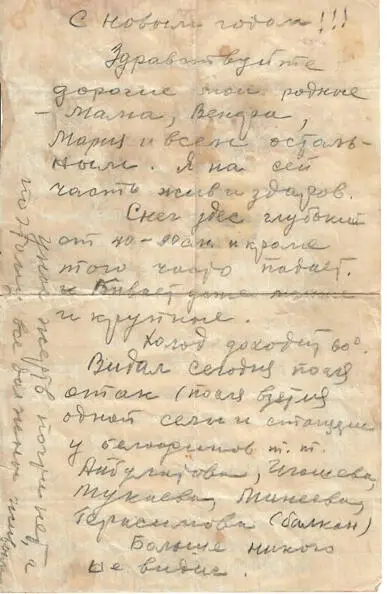 С новым годом!!!
Здравствуйте
дорогие мои родные
- Мама, Вендра,
Мария и всем осталь-
ным. Я на сей
часть жив и здоров.
Снег здес глубокий
от 40-90 см и кроме
того часто падает.
и Бывает даже
и крупные.
Холод доходит 60°.
Видал сегодня после
атак (после взятия
одной села и станции
у белофинов т.т.
Айбулатова, Игошева,
Мукаева, Минеева,
Герасимова (балкан)
Больше никого
не видил.
У нас жертв почти нет, а